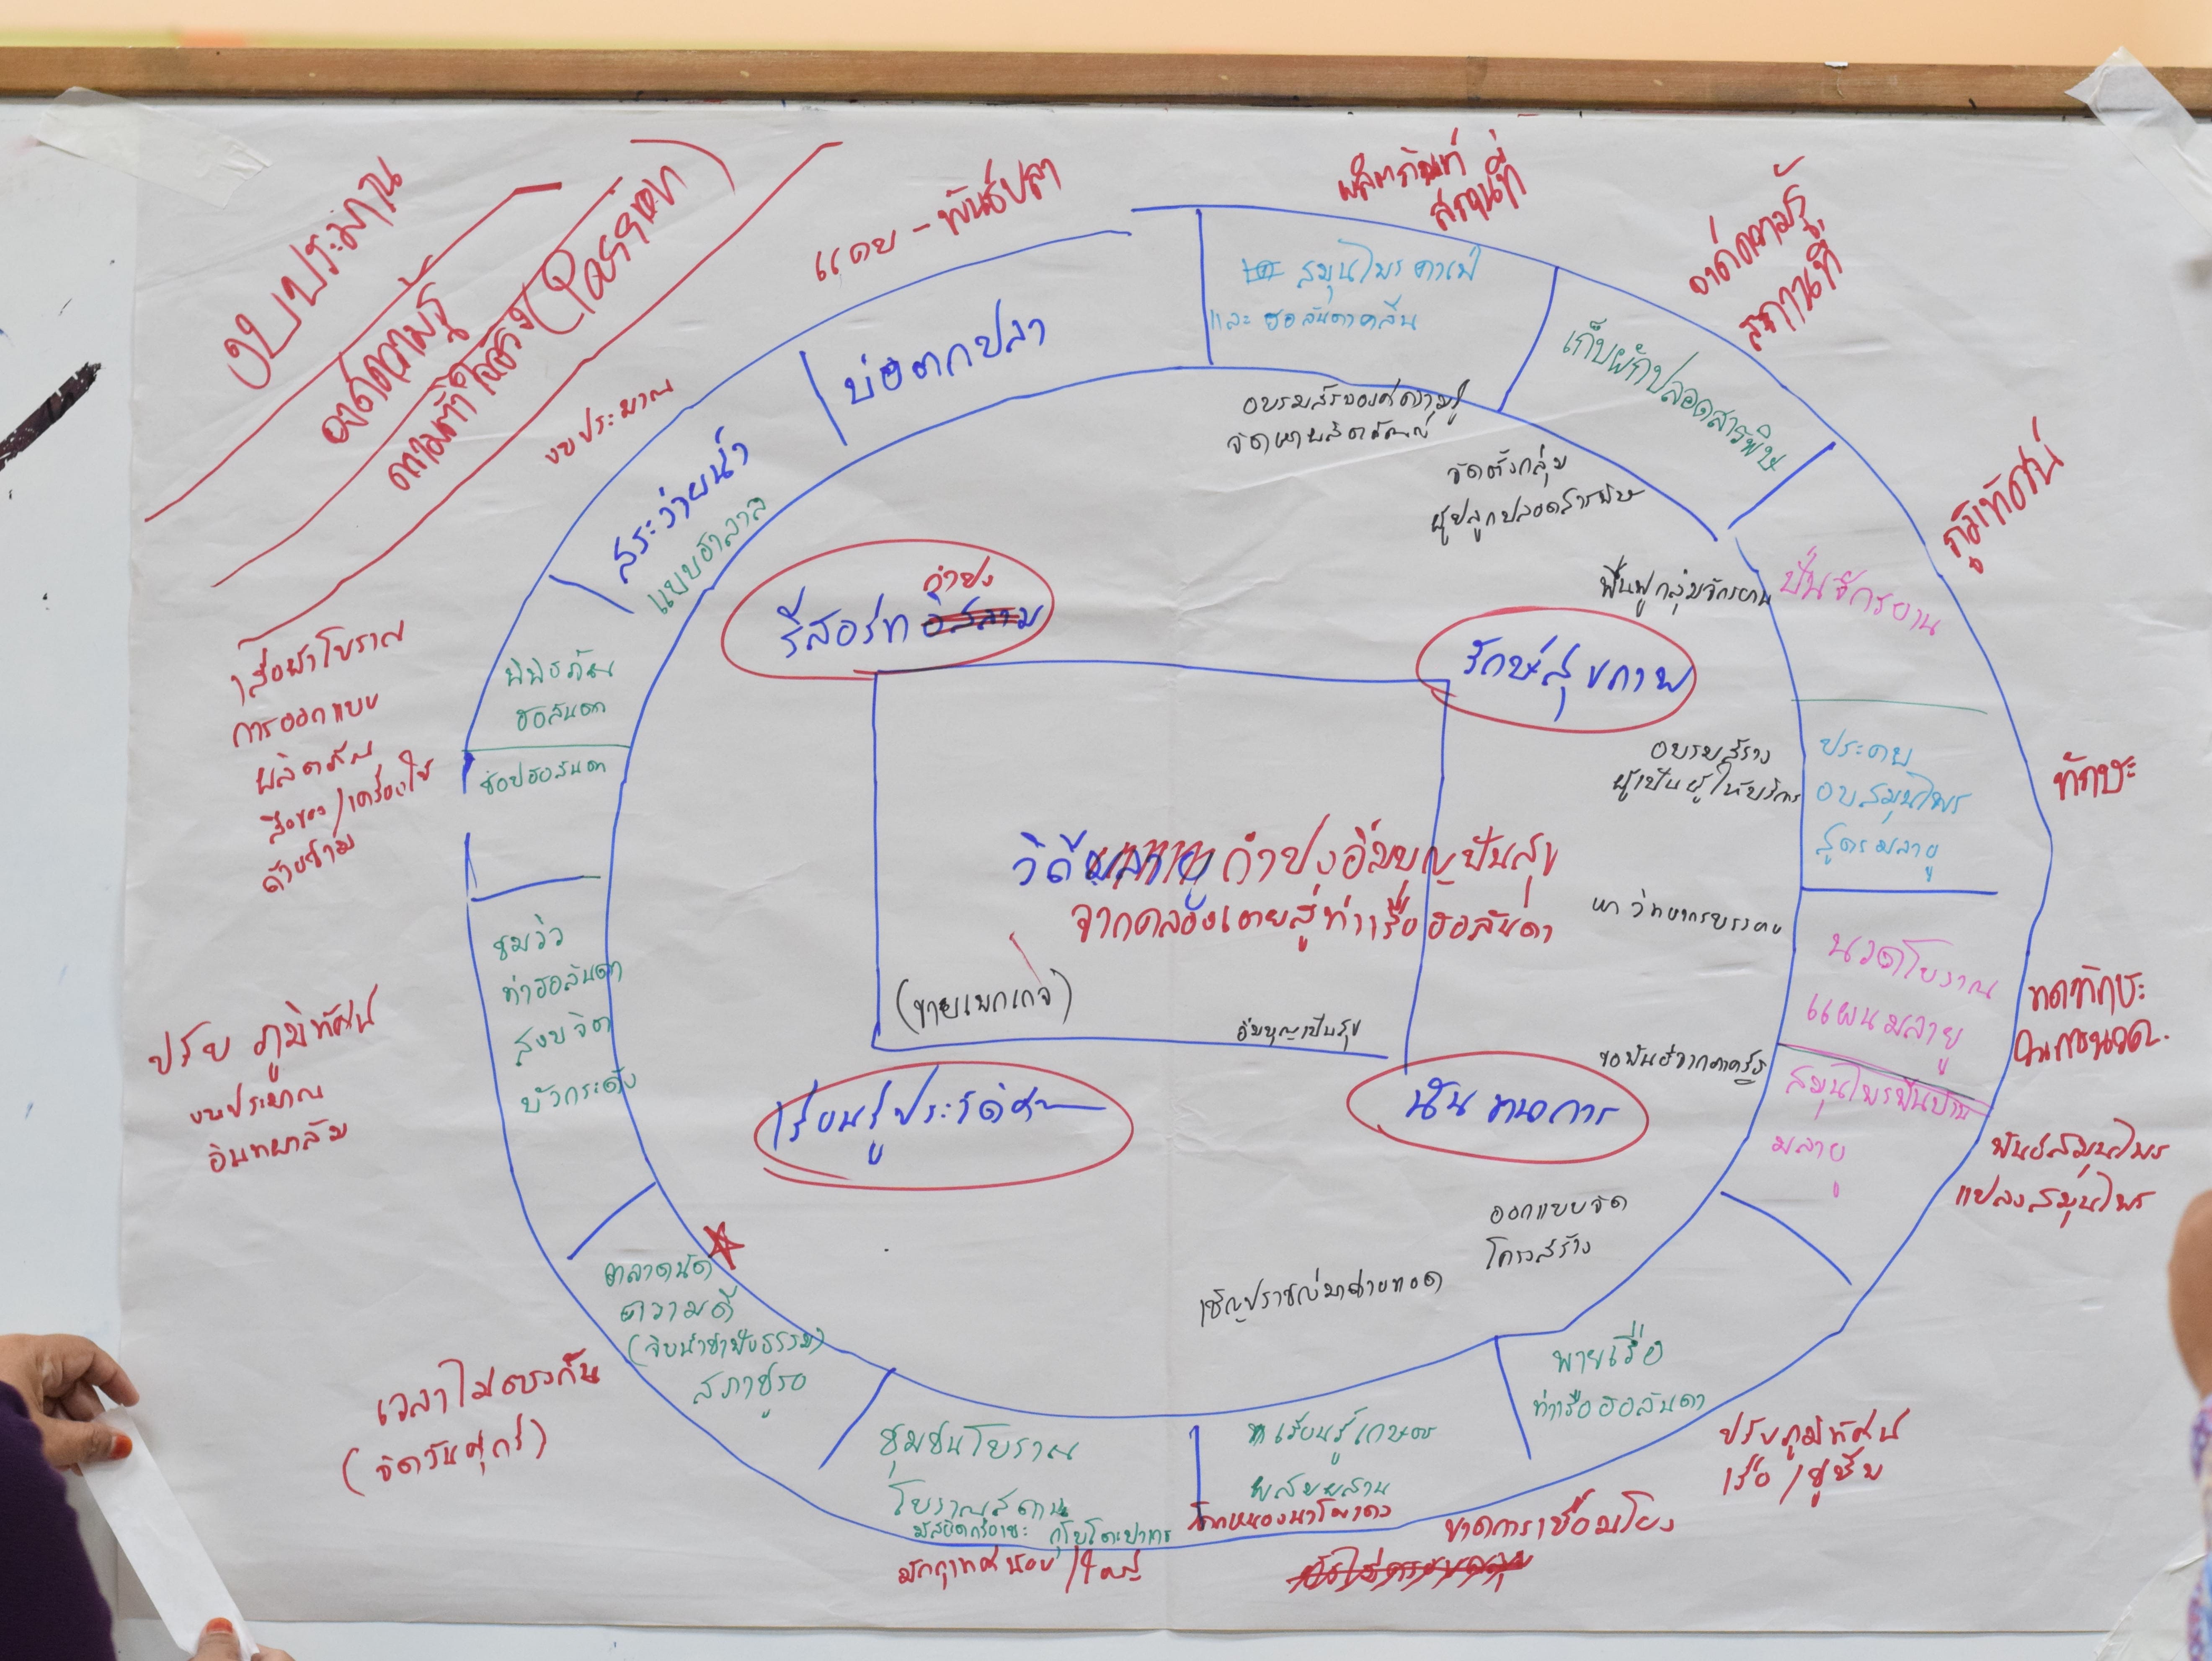 งบประมาณ
องค์ความรู้
แดย - พันธุ์ปลา
ผลิตภัณฑ์
สถานที่
องค์ความรู้
สถานที่
งบประมาณ
บ่อตกปลา
สมุนไพร คาเฟ่
และ ฮอลันดาคลีน
เก็บผักปลอดสารพิษ
ภูมิทัศน์
สระว่ายน้ำ
แบบฮาลาล
อบรมสร้างองค์ความรู้
จัดหาผลิตภัณฑ์
จัดตั้งกลุ่ม
ผู้ปลูกปลอดสารพิษ
ฟื้นฟูกลุ่มจักรยาน
ปั่นจักรยาน
รีสอร์ท
กำปง
รักษ์สุขภาพ
เสื้อผ้าโบราณ
การออกแบบ
ผลิตภัณ
สิ่งของ / เครื่องใช้
ถ้วยชาม
พิพิธภัณ
ฮอลันดา
ช้อปฮอลันดา
อบรมสร้าง
ผู้เป็นผู้ให้บริการ
ประคบ
อบสมุนไพร
สูตรมลายู
ทักษะ
วิถี
กำปงอิ่มบุญปันสุข
จากคลองเตยสู่ท่าเรือฮอลันดา
หาวิทยากรบรรยาย
นวดโบราณ
แผนมลายู
ขาดทักษะ
ในการนวด
ชมวิว
ท่าฮอลันดา
สงบจิต
บัวกระด้ง
ปรับ ภูมิทัศน์
งบประมาณ
อินทผาลัม
(ขายแพกเกจ)
อิ่มบุญเป็นสุข
ขอพันธ์จากภาครัฐ
สมุนไพรพื้นบ้าน
มลายู
พันธ์สมุนไพร
แปลงสมุนไพร
เรียนรู้ประวัติศ
นันทนาการ
ออกแบบจัด
โครงสร้าง
เชิญปราชญ์มาถ่ายทอด
ตลาดนัด
ความดี
(จิบน้ำชาฟังธรรม)
สภาชูรอ
เวลาไม่ตรงกัน
(จัดวันศุกร์)
พายเรือ
ท่าเรือฮอลันดา
ปรับภูมิทัศน์
เรือ / ชูชีพ
ชุมชนโบราณ
โบราณสถาน
เรียนรู้เกษตร
ผสมผสาน
โคกหนองนาโมเดล
ขาดการเชื่อมโยง
มัคคุเทศน้อย